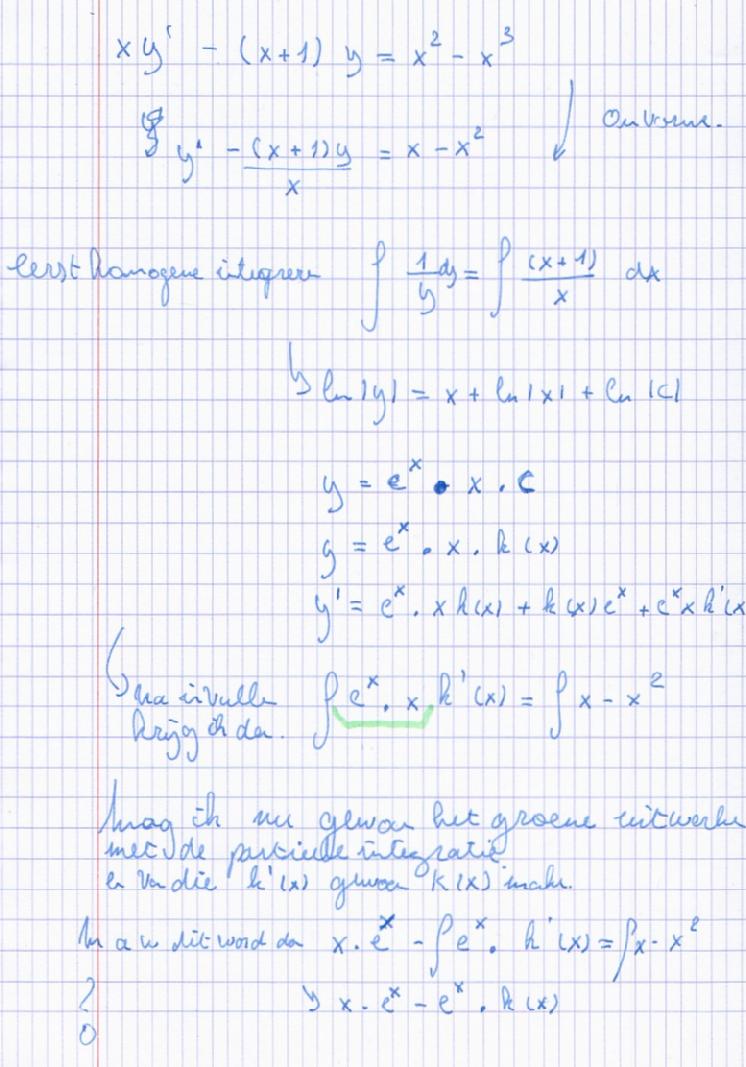 x y' - (x+1) y = x² - x³
y' - (x+1)y / x = x - x²
eerst homogene integrere ∫ 1/y dy = ∫ (x+1)/x dx
↳ ln|y| = x + ln|x| + ln|c|
y = eˣ • x . c
y = eˣ . x . k(x)
y' = eˣ . x k(x) + k(x) eˣ + eˣ x k'(x
↳ na invulle ∫ eˣ . x k'(x) = ∫ x - x²
krijg ik da.
mag ik nu gewoo het groene uitwerke
met de partiele integratie
en van die k'(x) gewoo K(x) make.
m a w dit word da x . eˣ - ∫ eˣ . k'(x) = ∫ x - x²
? ↳ x . eˣ - eˣ . k(x)